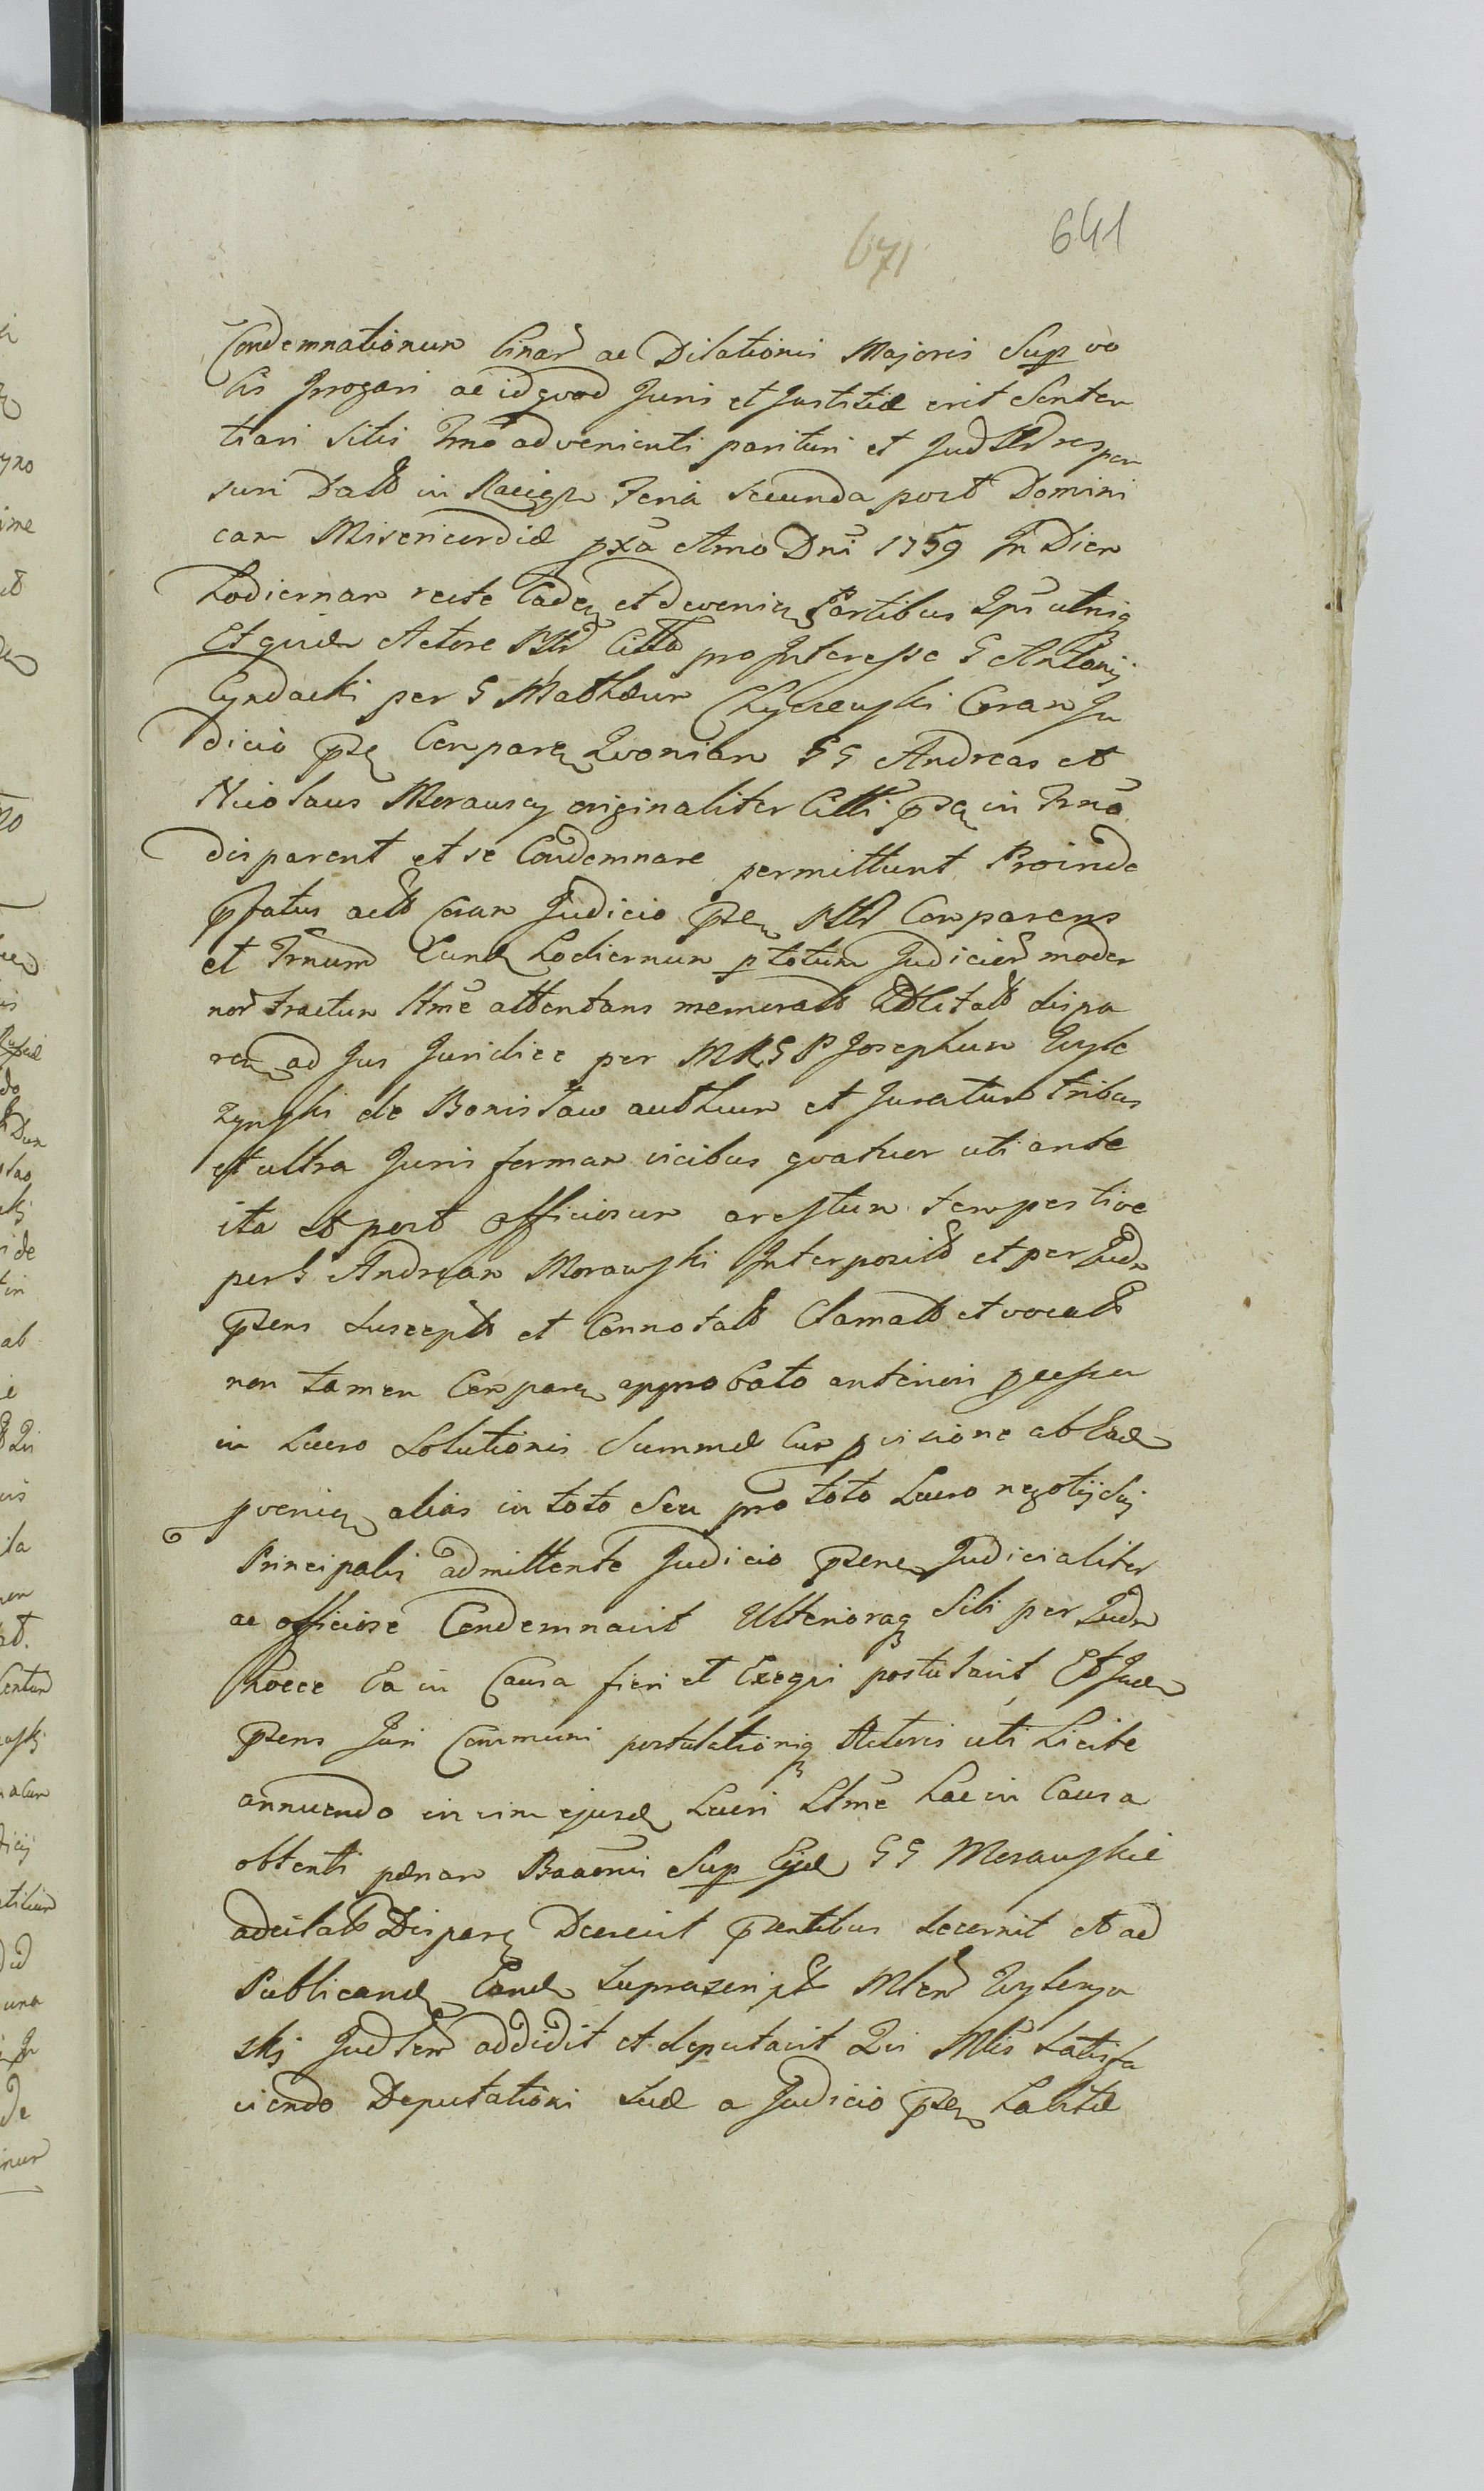 671 641
Condemnationum ac Dilationis Majoris Sup vo
bis Irrogari ac id quod Juris et Justitiæ erit Senten
tiari Sitis Tmo advenienti parituri et respon
suri Datt in Raciąz Feria secunda post Domini
cam Misericordiæ pxa Anno Dni 1759 In Diem
hodiernam recte Caden et devenien Partibus Ips utriq
Et quidem Actore Citto pro Interesse G Antonij
Cyndacki per G Mathæum Chyczewski Coram Ju
dicio pse Comparen Quoniam GG Andreas et
Nicolaus Morawscy originaliter Citti psen in Tmo
disparent et se Condemnare permittunt Proinde
pfatus actt Coram Judicio psen Comparens
et Trnum Eund hodiernum p totum Judicior moder
nor tractum ltme attentans memoratt dispa
ren ad Jus Juridice per MRGP Josephum Zyle
zynski de Bonisław authum et Juratum tribus
et ultra Juris formam vicibus quatuor uti ante
ita et post officiosum arestum tempestive
per G Andream Morawski Interpositt et per Jud
psens susceptt et Connotatt Clamatt et vocatt
non tamen Comparen approbato anteriori pcessu
in Lucro Solutionis Summæ Cum pvisione ab Ead
pvenien alias in toto Seu pro toto Lucro negotij Sui
Principalis admittente Judicio psen Judicialiter
ac officiose Condemnavit Ulterioraq Sibi per Jud
hocce Ea in Causa fieri et Exequi postulavit Et Jud
psens Juri Communi postulationiq Actoris uti Licite
annuendo in vim ejusd Lucri Ltme hac in Causa
obtenti pænam Bannis Sup Eisd GG Morawskie
adcitatt Disparen Decrevit psentibus decernit et ad
Publicand Eand suprascriptt Mlem Zylenzyn
ski addidit et deputavit Qui Mlis Satisfa
ciendo Deputationi suæ a Judicio psen habitæ